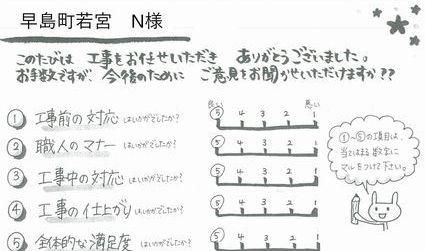 早島町若宮 N様
このたびは 工事をお任せいただき ありがとうございました。
お手数ですが、今後のために ご意見をお聞かせいただけますか??
良い 悪い
① 工事前の対応 はいかがでしたか? ⑤ 4 3 2 1
② 職人のマナー はいかがでしたか? ⑤ 4 3 2 1
③ 工事中の対応 はいかがでしたか? ⑤ 4 3 2 1
④ 工事の仕上がり はいかがでしたか? ⑤ 4 3 2 1
⑤ 全体的な満足度 はいかがでしたか? ⑤ 4 3 2 1
①~⑤の項目は、
当てはまる数字に
マルをつけて下さい。